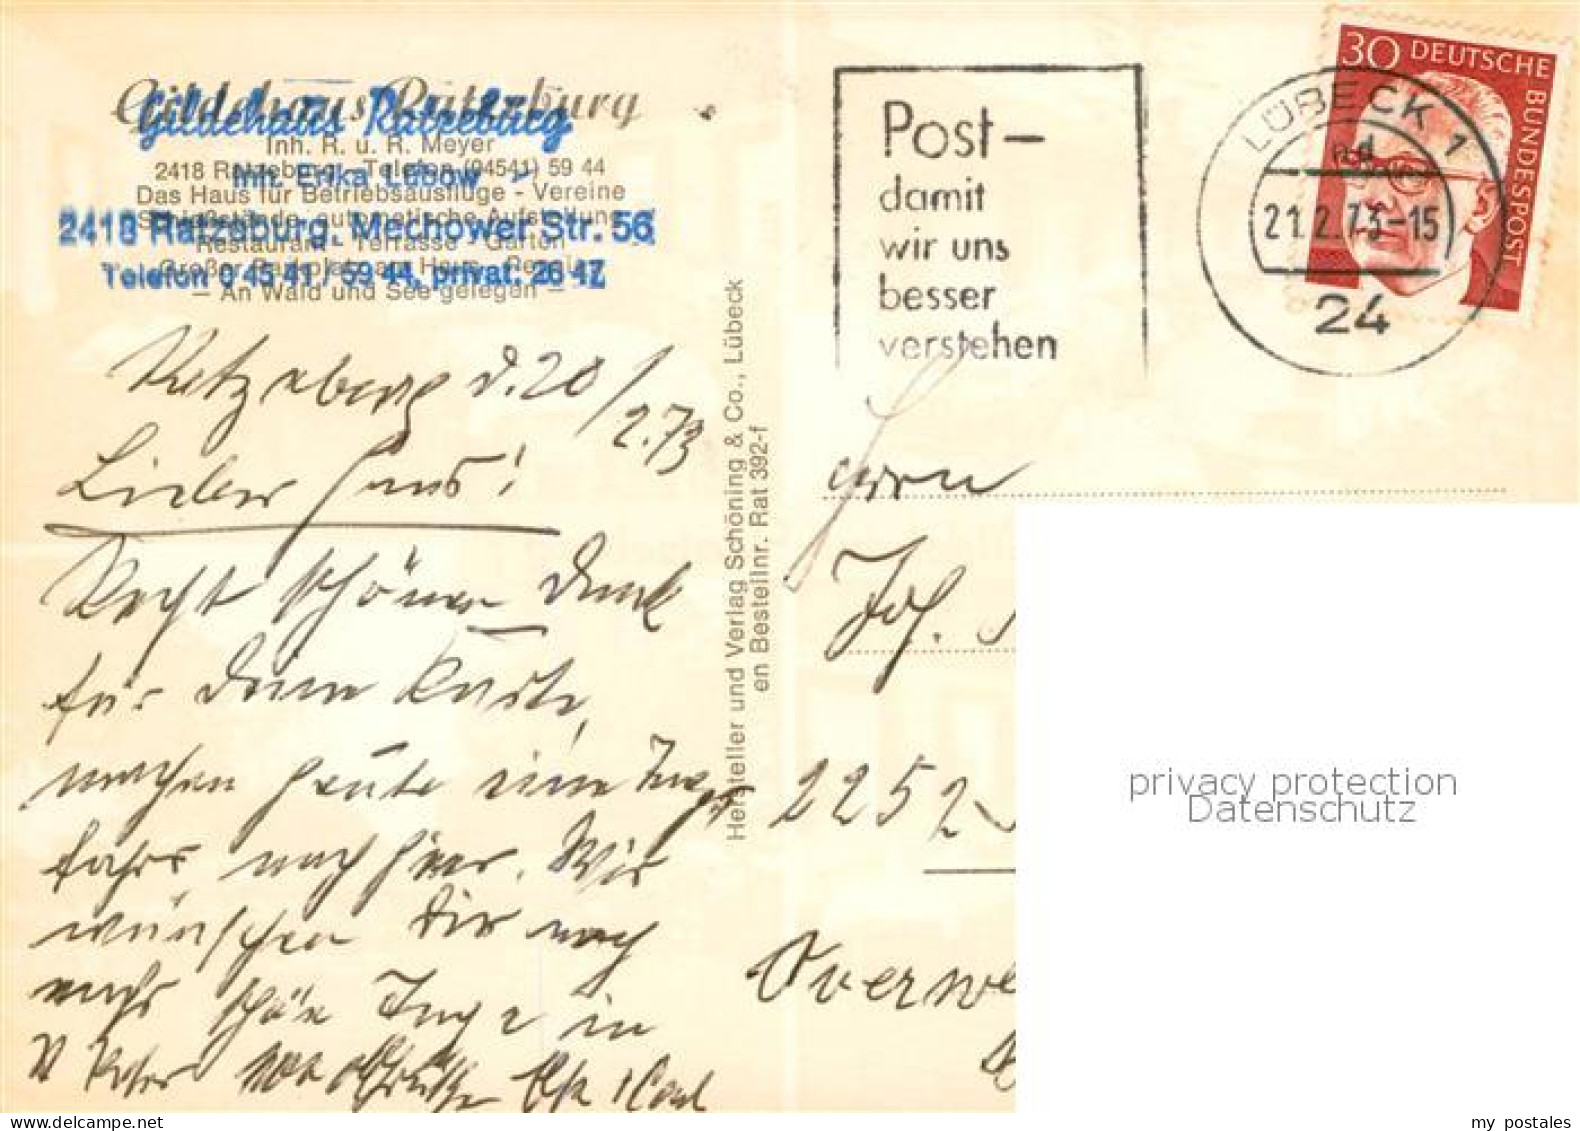 Gildehaus Ratzeburg
Inh. R. u. R. Meyer
2418 Ratzeburg - Telefon (04541) 59 44
Das Haus für Betriebsausflüge - Vereine
Schießstände, automatische Aufstellung
Restaurant - Terrasse - Garten
Großer Parkplatz am Haus
— An Wald und See gelegen —
Gildehaus Ratzeburg
Inh. Erika Lübow
2418 Ratzeburg, Mechower Str. 56
Telefon 0 45 41 / 59 44, privat: 26 47
Ratzeburg d. 20/2.73
Lieber Hans!
Recht schönen Dank
für Deine Karte,
machen heute eine
fahrt nach hier. Wir
wünschen Dir noch
recht schöne Tage in
Hersteller und Verlag Schöning & Co., Lübeck
en Bestellnr. Rat 392-f
Post —
damit
wir uns
besser
verstehen
30 DEUTSCHE
BUNDESPOST
LÜBECK 1
nd
21.2.73-15
24
Herrn
Joh.
2252
privacy protection
Datenschutz
my postales